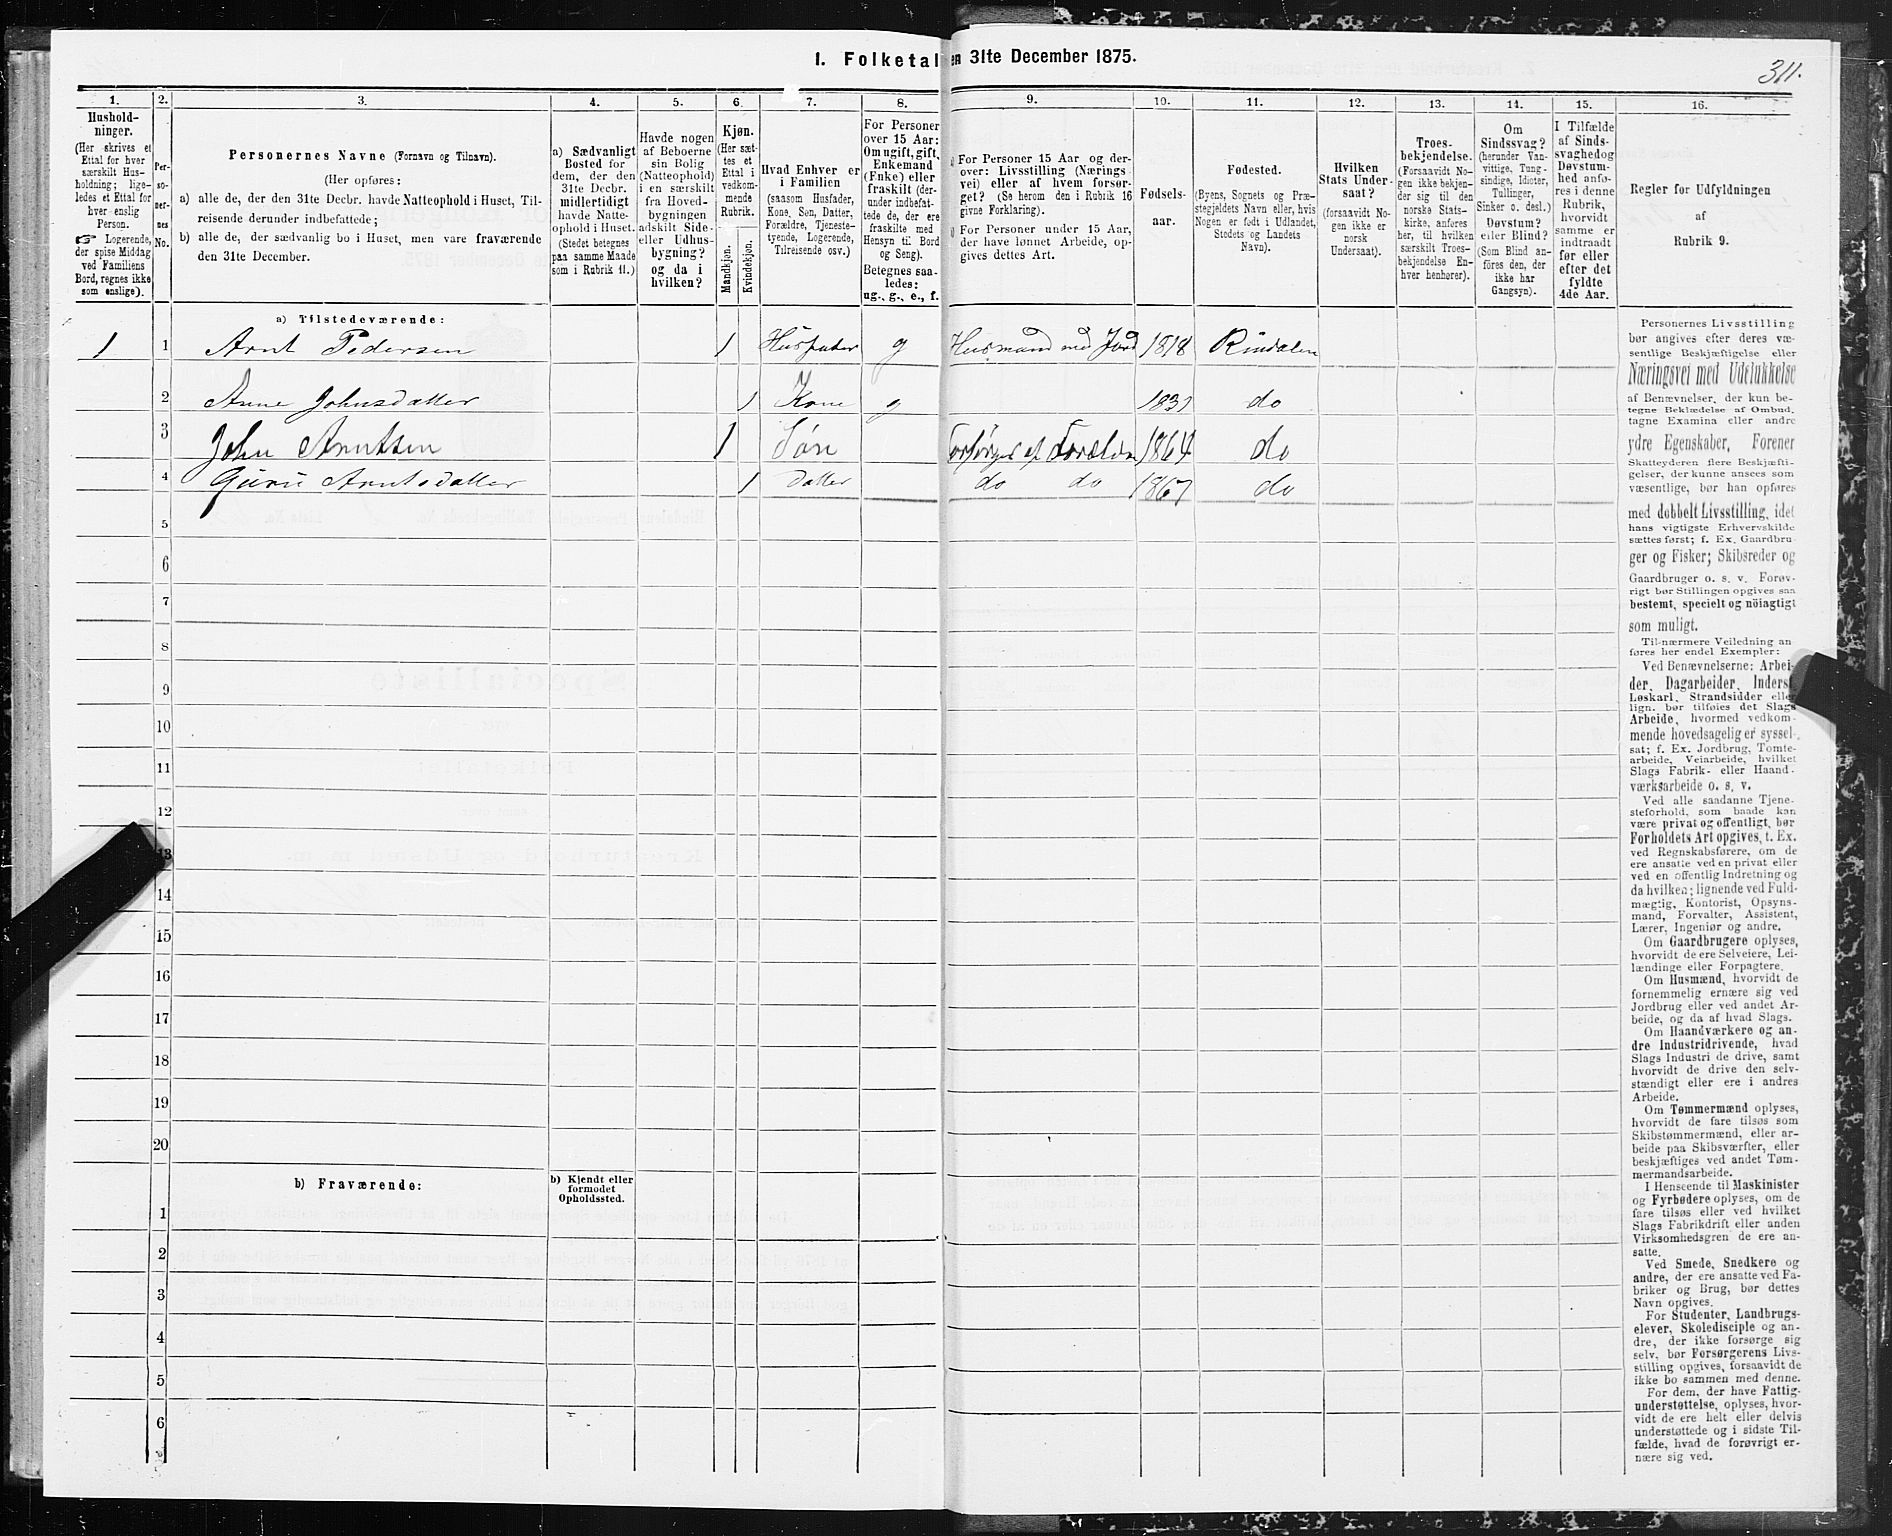 I. Folketal en 31te December 1875.
311.
1.
2.
3.
4.
5.
6.
7.
8.
9.
10.
11.
12.
13.
14.
15.
16.
Hushold-
ninger.
(Her skrives et
Ettal for hver
særskilt Hus-
holdning; lige-
ledes et Ettal for
hver enslig
Person.
☞ Logerende,
der spise Middag
ved Familiens
Bord, regnes ikke
som enslige).
Per-
so-
ner-
nes
No.
Personernes Navne (Fornavn og Tilnavn).
(Her opføres:
a) alle de, der den 31te Decbr. havde Natteophold i Huset, Til-
reisende derunder indbefattede;
b) alle de, der sædvanlig bo i Huset, men vare fraværende
den 31te December.
a) Sædvanligt
Bosted for
dem, der den
31te Decbr.
midlertidigt
havde Natte-
ophold i Huset.
(Stedet betegnes
paa samme Maade
som i Rubrik 11.)
Havde nogen
af Beboerne
sin Bolig
(Natteophold)
i en særskilt
fra Hoved-
bygningen
adskilt Side-
eller Udhus-
bygning?
og da i
hvilken?
Kjøn.
(Her sæt-
tes et
Ettal i
vedkom-
mende
Rubrik.
Mandkjøn.
Kvindekjøn.
Hvad Enhver er
i Familien
(saasom Husfader,
Kone, Søn, Datter,
Forældre, Tjeneste-
tyende, Logerende,
Tilreisende osv.)
For Personer
over 15 Aar:
Om ugift, gift,
Enkemand
(Enke) eller
fraskilt (der-
under indbefat-
tede de, der ere
fraskilte med
Hensyn til Bord
og Seng).
Betegnes saa-
ledes:
ug., g., e., f.
For Personer 15 Aar og der-
over: Livsstilling (Nærings
vei) eller af hvem forsør-
get? (Se herom den i Rubrik 16
givne Forklaring).
For Personer under 15 Aar,
der have lønnet Arbeide, op-
gives dettes Art.
Fødsels-
aar.
Fødested.
(Byens, Sognets og Præ-
stegjeldets Navn eller, hvis
Nogen er født i Udlandet,
Stedets og Landets
Navn).
Hvilken
Stats Under-
saat?
(forsaavidt No-
gen ikke er
norsk
Undersaat).
Troes-
bekjendelse.
(Forsaavidt No-
gen ikke bekjen-
der sig til den
norske Stats-
kirke, anføres
her, til hvilken
særskilt Troes-
bekjendelse En-
hver henhører).
Om
Sindssvag?
(herunder Van-
vittige, Tung-
sindige, Idioter,
Tullinger,
Sinker o. desl.)
Døvstum?
eller Blind?
(Som Blind an-
føres den, der
ikke har
Gangsyn).
I Tilfælde
af Sinds-
svaghed og
Døvstum-
hed anfø-
res i denne
Rubrik,
hvorvidt
samme er
indtraadt
før eller
efter det
fyldte
4de Aar.
Regler for Udfyldningen
af
Rubrik 9.
a) Tilstedeværende:
1 1 Arnt Pedersen 1 Husfader g Husmand med Jord 1818 Rindalen
2 Anne Johnsdatter 1 Kone g 1831 do
3 John Arntsen 1 Søn Forsørges af Forældre 1864 do
4 Guru Arntsdatter 1 datter do do 1867 do
5
6
7
8
9
10
11
12
13
14
15
16
17
18
19
20
b) Fraværende:
b) Kjendt eller
formodet
Opholdssted.
1
2
3
4
5
6
Personernes Livsstilling
bør angives efter deres væ-
sentlige Beskjæftigelse eller
Næringsvei med Udelukkelse
af Benævnelser, der kun be-
tegne Beklædelse af Ombud,
tagne Examina eller andre
ydre Egenskaber, Forener
Skatteyderen flere Beskjæfti-
gelser, der kunne ansees som
væsentlige, bør han opføres
med dobbelt Livsstilling, idet
hans vigtigste Erhvervskilde
sættes først; f. Ex. Gaardbru-
ger og Fisker; Skibsreder og
Gaardbruger o. s. v. Forøv-
rigt bør Stillingen opgives saa
bestemt, specielt og nöiagtigt
som muligt.
Til-nærmere Veiledning an-
føres her endel Exempler:
Ved Benævnelserne: Arbei-
der, Dagarbeider, Inderst,
Løskarl, Strandsidder eller
lign. bør tilføies det Slags
Arbeide, hvormed vedkom-
mende hovedsagelig er syssel-
sat; f. Ex. Jordbrug, Tomte-
arbeide, Veiarbeide, hvilket
Slags Fabrik- eller Haand-
værksarbeide o. s. v.
Ved alle saadanne Tjene-
steforhold, som baade kan
være privat og offentligt, bør
Forholdets Art opgives, t. Ex.
ved Regnskabsførere, om de
ere ansatte ved en privat eller
ved en offentlig Indretning og
da hvilken; lignende ved Fuld-
mægtig, Kontorist, Opsyns-
mand, Forvalter, Assistent,
Lærer, Ingeniør og andre.
Om Gaardbrugere oplyses,
hvorvidt de ere Selveiere, Lei-
lændinge eller Forpagtere.
Om Husmænd, hvorvidt de
fornemmelig ernære sig ved
Jordbrug eller ved andet Ar-
beide, og da af hvad Slags.
Om Haandværkere og an-
dre Industridrivende, hvad
Slags Industri de drive, samt
hvorvidt de drive den selv-
stændigt eller ere i andres
Arbeide.
Om Tømmermænd oplyses,
hvorvidt de fare tilsøs som
Skibstømmermænd, eller ar-
beide paa Skibsværfter, eller
beskjæftiges ved andet Tøm-
mermandsarbeide.
I Henseende til Maskinister
og Fyrbødere oplyses, om de
fare tilsøs eller ved hvilket
Slags Fabrikdrift eller anden
Virksomhedsgren de ere an-
satte.
Ved Smede, Snedkere og
andre, der ere ansatte ved Fa-
briker og Brug, bør dettes
Navn opgives.
For Studenter, Landbrugs-
elever, Skoledisciple og an-
dre, der ikke forsørge sig
selv, bør Forsørgerens Livs-
stilling opgives, forsaavidt de
ikke bo sammen med denne.
For dem, der have Fattig-
understøttelse, oplyses, hvor-
vidt de ere helt eller delvis
understøttede og i sidste Til-
fælde, hvad de forøvrigt er-
nære sig ved.